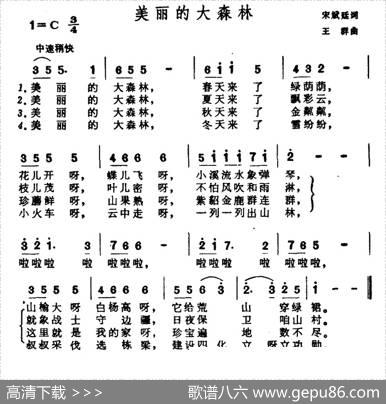 美丽的大森林
宋斌廷词
1=C 3/4
王群曲
中速稍快
3 5 5. 1 | 6 5 5 |
1.美丽的大森林， 春天来了 绿荫荫，
2.美丽的大森林， 夏天来了 飘彩云，
3.美丽的大森林， 秋天来了 金粼粼，
4.美丽的大森林， 冬天来了 雪纷纷，
3 5 5 5 | 4 6 6 6 |
花儿开呀， 蝶儿飞呀， 小溪流水象弹琴，
枝儿茂呀， 叶儿密呀， 不怕风吹和雨淋，
珍蘑鲜呀， 山果熟呀， 紫貂金鹿群连群，
小火车呀， 云中走呀， 一列一列出山林，
啦啦啦 啦 啦啦啦， 啦啦啦 啦 啦啦啦，
山榆大呀 白杨高呀， 它给荒山穿绿裙。
就象战士 守边疆， 日夜保卫咱山村。
这里就是 我的家呀， 珍宝遍地数不尽。
叔叔采伐 选栋梁， 建设四化立呀立功勋。
高清下载 >>>
歌谱八六 www.gepu86.com